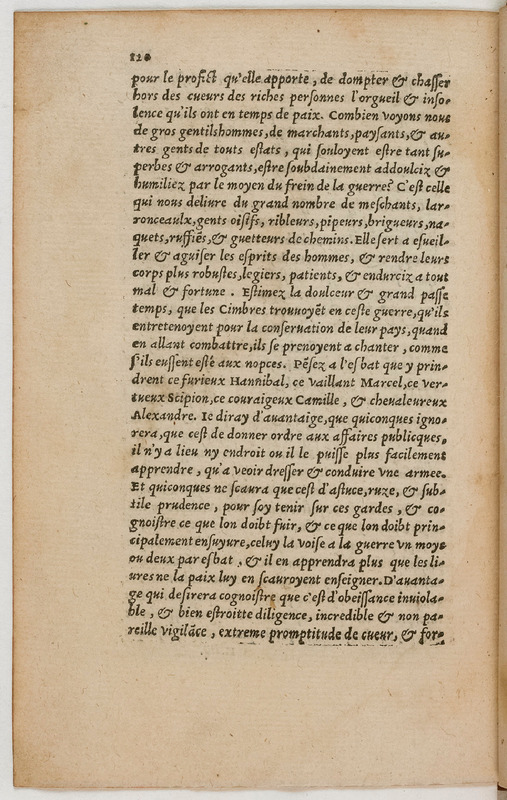 120
pour le profict qu'elle apporte, de dompter & chasser
hors des cueurs des riches personnes l'orgueil & inso-
lence qu'ils ont en temps de paix. Combien voyons nous
de gros gentilshommes, de marchants, paysants, & au-
tres gents de touts estats, qui souloyent estre tant su-
perbes & arrogants, estre soubdainement addoulciz &
humiliez par le moyen du frein de la guerre? C'est celle
qui nous deliure du grand nombre de meschants, lar-
ronceaulx, gents oisifs, ribleurs, pipeurs, brigueurs, na-
quets, ruffiẽs, & guetteurs de chemins. Elle sert a esueil-
ler & aguiser les esprits des hommes, & rendre leurs
corps plus robustes, legiers, patients, & endurciz a tout
mal & fortune. Estimez la doulceur & grand passe
temps, que les Cimbres trouuoyẽt en ceste guerre, qu'ils
entretenoyent pour la conseruation de leur pays, quand
en allant combattre, ils se prenoyent a chanter, comme
s'ils eussent esté aux nopces. Pẽsez a l'esbat que y prin-
drent ce furieux Hannibal, ce vaillant Marcel, ce ver-
tueux Scipion, ce couraigeux Camille, & cheualeureux
Alexandre. Ie diray d'auantaige, que quiconques igno-
rera, que cest de donner ordre aux affaires publicques,
il n'y a lieu ny endroit ou il le puisse plus facilement
apprendre, qu'a veoir dresser & conduire vne armee.
Et quiconques ne scaura que cest d'astuce, ruze, & sub-
tile prudence, pour soy tenir sur ces gardes, & co-
gnoistre ce que lon doibt fuir, & ce que lon doibt prin-
cipalement ensuyure, celuy la voise a la guerre vn moys
ou deux par esbat, & il en apprendra plus que les li-
ures ne la paix luy en scauroyent enseigner. D'auanta-
ge qui desirera cognoistre que c'est d'obeissance inuiola-
ble, & bien estroitte diligence, incredible & non pa-
reille vigilãce, extreme promptitude de cueur, & for-